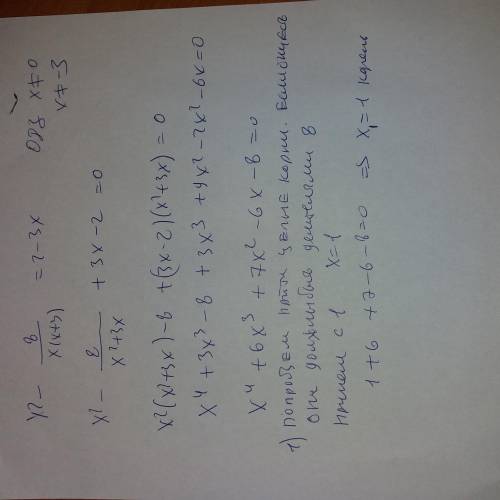 x² - 8/x(x+3) = 2-3x   ОДЗ x≠0
x≠-3
x² - 8/x²+3x + 3x-2 = 0
x²(x²+3x)-8 +(3x-2)(x²+3x) = 0
x⁴ + 3x³ - 8 + 3x³ + 9x² - 2x² - 6x = 0
x⁴ + 6x³ + 7x² - 6x - 8 = 0
1) Попробуем найти целые корни. Если они есть
они должны быть делителями 8
Начнем с 1   x=1
1+6 +7-6-8=0 => x₁=1 корень